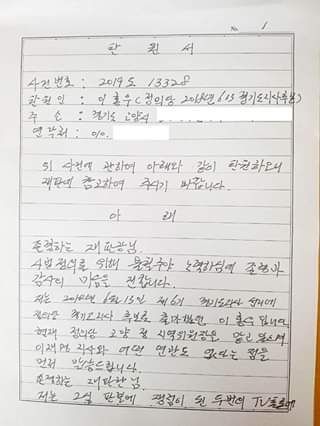 No. 1
탄 원 서
사건번호 : 2019도 13328
탄 원 인 : 이홍우(정의당 2018년 6.13 경기도지사후보)
주 소 : 경기도 고양시
연락처 : 010.
위 사건에 관하여 아래와 같이 탄원하오니
재판에 참고하여 주시기 바랍니다.
아 래
존경하는 재판관님.
사법정의를 위해 불철주야 노력하심에 존경과
감사의 마음을 전합니다.
저는 2018년 6월 13일 경기도지사 선거에
정의당 경기도지사 후보로 출마했던 이홍우입니다.
현재 정의당 고양 정 지역위원장을 맡고 있으며
이재명 지사와 어떤 연관도 없다는 점을
먼저 말씀드립니다.
존경하는 재판관님.
저는 2심 판결에 쟁점이 된 두번의 TV토론에